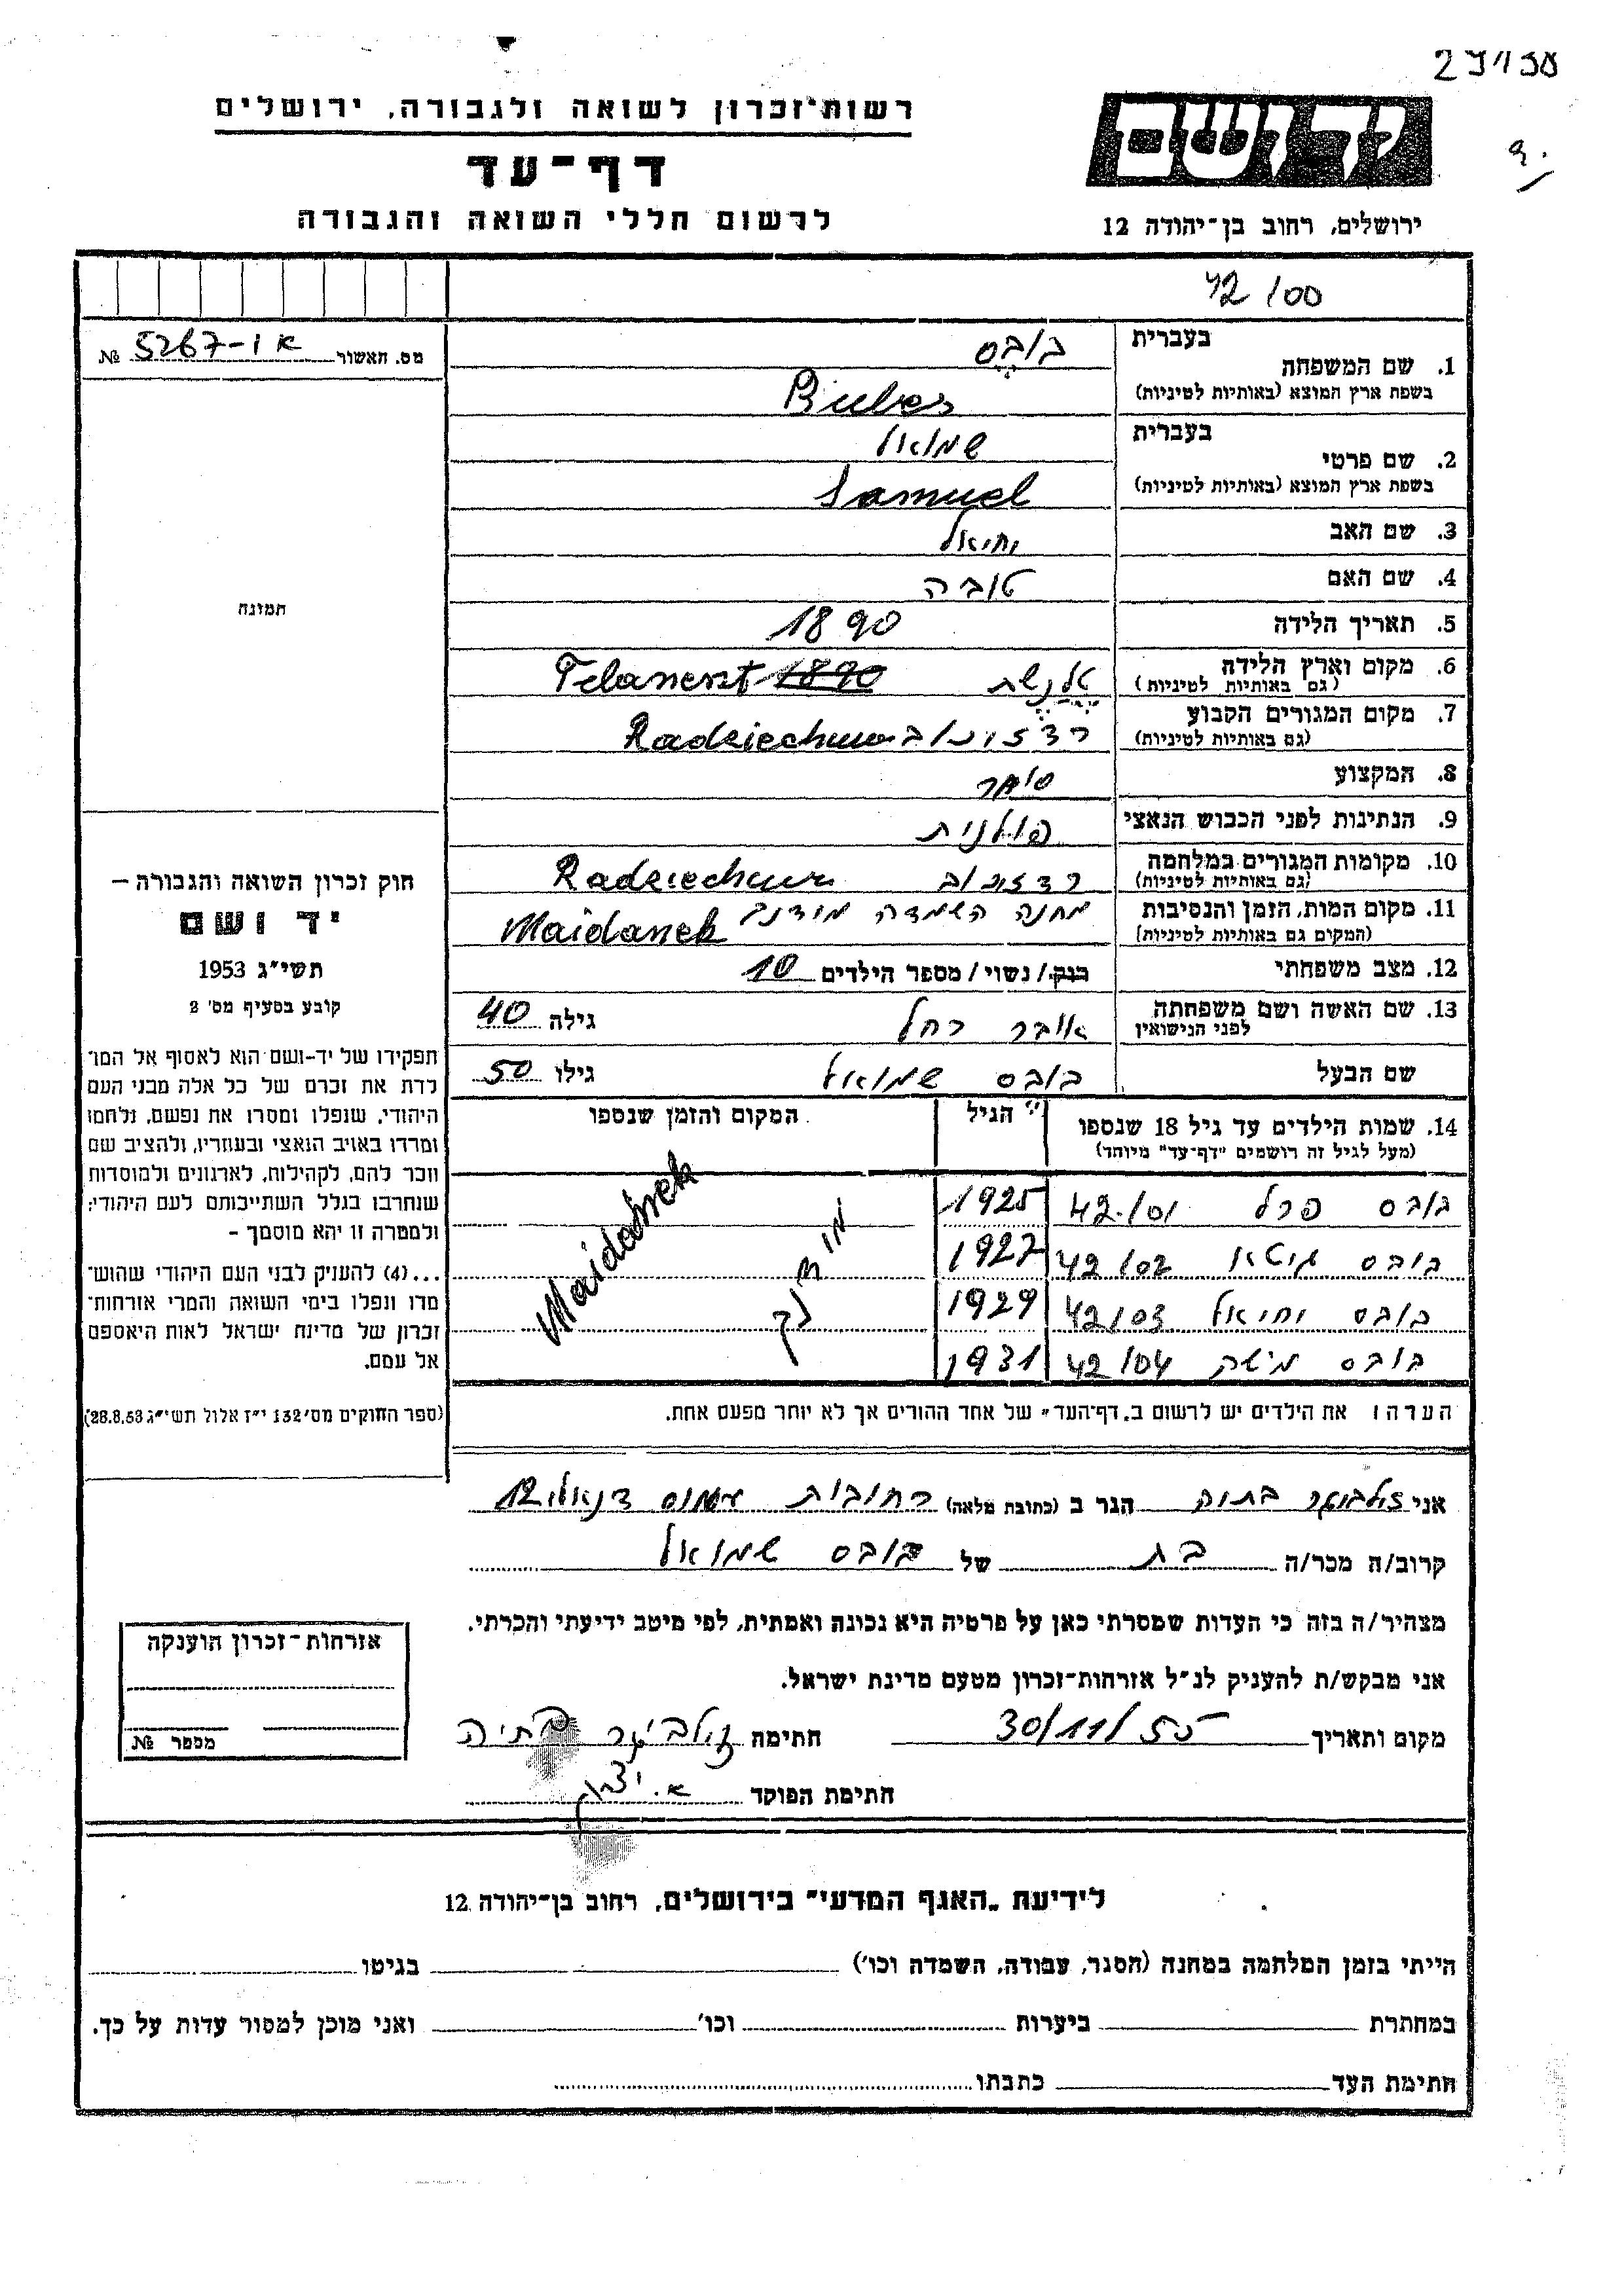 רשות־זכרון לשואה ולגבורה, ירושלים
דף־עד
לרשום חללי השואה והגבורה
יד ושם
ירושלים, רחוב בן־יהודה 12
42/00
מס. האשור א ו-5267 №
1. שם המשפחה בעברית בובס
בשפת ארץ המוצא (באותיות לטיניות) Bubes
2. שם פרטי בעברית שמואל
בשפת ארץ המוצא (באותיות לטיניות) Samuel
3. שם האב יחיאל
4. שם האם טובה
5. תאריך הלידה 1890
6. מקום וארץ הלידה
(גם באותיות לטיניות)
7. מקום המגורים הקבוע
(גם באותיות לטיניות)
8. המקצוע סוחר
9. הנתינות לפני הכבוש הנאצי פולנית
10. מקומות המגורים במלחמה
(גם באותיות לטיניות)
11. מקום המות, הזמן והנסיבות מחנה השמדה
(המקום גם באותיות לטיניות) Maidanek
12. מצב משפחתי רווק/נשוי/מספר הילדים 10
13. שם האשה ושם משפחתה רחל גילה 40
לפני הנישואין
שם הבעל בובס שמואל גילו 50
14. שמות הילדים עד גיל 18 שנספו הגיל המקום והזמן שנספו
(מעל לגיל זה רושמים "דף־עד" מיוחד)
בובס פרל 42/01 1925
בובס גיטא 42/02 1927
בובס יחיאל 42/03 1929
בובס 42/04 1931
Maidanek
הערה: את הילדים יש לרשום ב„דף־העד" של אחד ההורים אך לא יותר מפעם אחת.
תמונה
חוק זכרון השואה והגבורה –
יד ושם
תשי״ג 1953
קובע בסעיף מס׳ 2
תפקידו של יד-ושם הוא לאסוף אל המו־
לדת את זכרם של כל אלה מבני העם
היהודי, שנפלו ומסרו את נפשם, נלחמו
ומרדו באויב הנאצי ובעוזריו, ולהציב שם
וזכר להם, לקהילות, לארגונים ולמוסדות
שנחרבו בגלל השתייכותם לעם היהודי;
ולמטרה זו יהא מוסמך –
...(4) להעניק לבני העם היהודי שהוש־
מדו ונפלו בימי השואה והמרי אזרחות־
זכרון של מדינת ישראל לאות היאספם
אל עמם.
(ספר החוקים מס׳ 132 י״ז אלול תשי״ג 28.8.53)
אני הגר ב (כתובת מלאה) רחובות
קרוב/ה מכר/ה בת של בובס שמואל
מצהיר/ה בזה כי העדות שמסרתי כאן על פרטיה היא נכונה ואמתית, לפי מיטב ידיעתי והכרתי.
אני מבקש/ת להעניק לנ״ל אזרחות־זכרון מטעם מדינת ישראל.
מקום ותאריך 30/11/55 חתימה
חתימת הפוקד
אזרחות־זכרון הוענקה
מספר №
לידיעת „האגף המדעי" בירושלים, רחוב בן־יהודה 12
הייתי בזמן המלחמה במחנה (הסגר, עבודה, השמדה וכו׳) בגיטו
במחתרת ביערות וכו׳ ואני מוכן למסור עדות על כך.
חתימת העד כתבתו